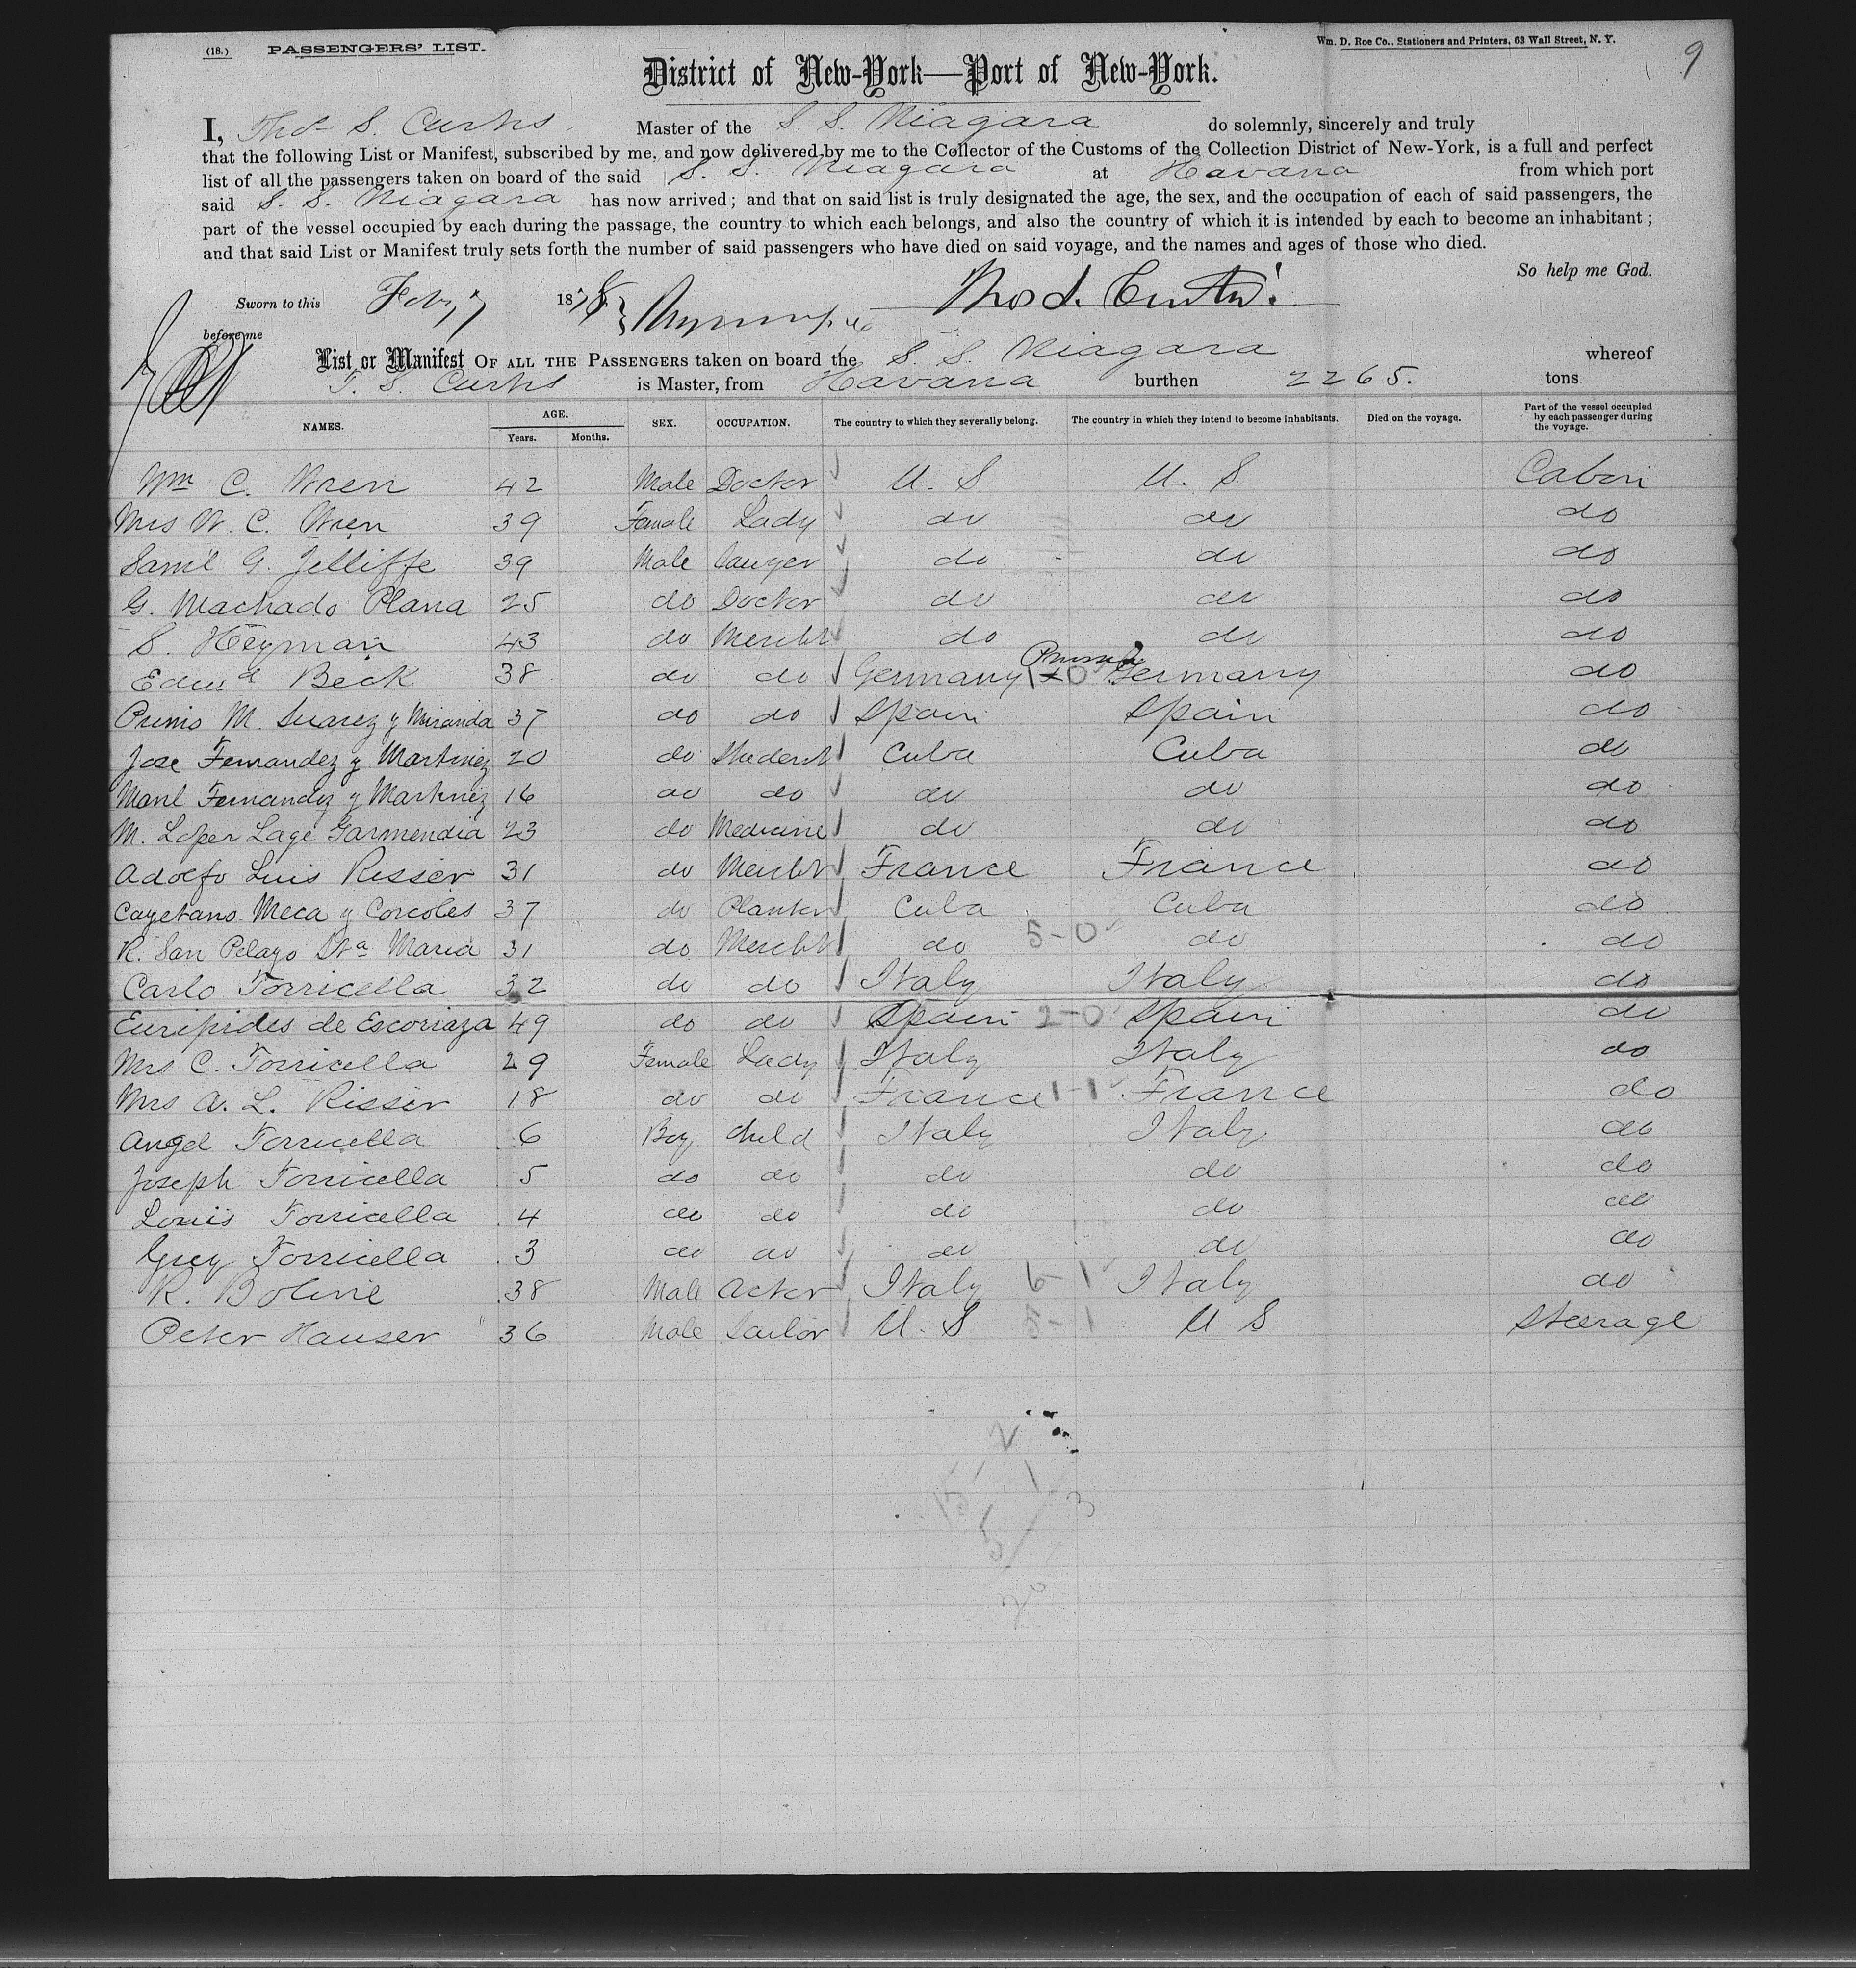 (18.) PASSENGERS' LIST.
Wm. D. Roe Co., Stationers and Printers, 63 Wall Street, N. Y.
9
District of New-York—Port of New-York.
I, Thos S. Curtis Master of the S. S. Niagara do solemnly, sincerely and truly
that the following List or Manifest, subscribed by me, and now delivered by me to the Collector of the Customs of the Collection District of New-York, is a full and perfect
list of all the passengers taken on board of the said S. S. Niagara at Havana from which port
said S. S. Niagara has now arrived; and that on said list is truly designated the age, the sex, and the occupation of each of said passengers, the
part of the vessel occupied by each during the passage, the country to which each belongs, and also the country of which it is intended by each to become an inhabitant;
and that said List or Manifest truly sets forth the number of said passengers who have died on said voyage, and the names and ages of those who died.
So help me God.
Sworn to this Feby 7 1878 Thos S. Curtis
before me
List or Manifest OF ALL THE PASSENGERS taken on board the S. S. Niagara whereof
T. S. Curtis is Master, from Havana burthen 2265. tons
NAMES. AGE. Years. Months. SEX. OCCUPATION. The country to which they severally belong. The country in which they intend to become inhabitants. Died on the voyage. Part of the vessel occupied by each passenger during the voyage.
Wm C. Wren 42 Male Doctor U. S U. S Cabin
Mrs W. C. Wren 39 Female Lady do do do
Saml G. Jelliffe 39 Male Lawyer do do do
G. Machado Plana 25 do Doctor do do do
S. Heyman 43 do Mercht do do do
Edwd Beck 38 do do Germany Prussia 1-0 Germany do
Primo M. Suarez y Miranda 37 do do Spain Spain do
Jose Fernandez y Martinez 20 do Student Cuba Cuba do
Manl Fernandez y Martinez 16 do do do do do
M. Lopez Lage Garmendia 23 do Medicine do do do
Adolfo Luis Risser 31 do Mercht France France do
Cayetano Meca y Corcoles 37 do Planter Cuba Cuba do
R. San Pelayo Sta Maria 31 do Mercht do 5-0 do do
Carlo Torricella 32 do do Italy Italy do
Euripides de Escoriaza 49 do do Spain 2-0 Spain do
Mrs C. Torricella 29 Female Lady Italy Italy do
Mrs A. L. Risser 18 do do France 1-1 France do
Angel Torricella 6 Boy Child Italy Italy do
Joseph Torricella 5 do do do do do
Louis Torricella 4 do do do do do
Guy Torricella 3 do do do do do
R. Boline 38 Male Actor Italy 6-1 Italy do
Peter Hauser 36 Male Sailor U. S 5-1 U S Steerage